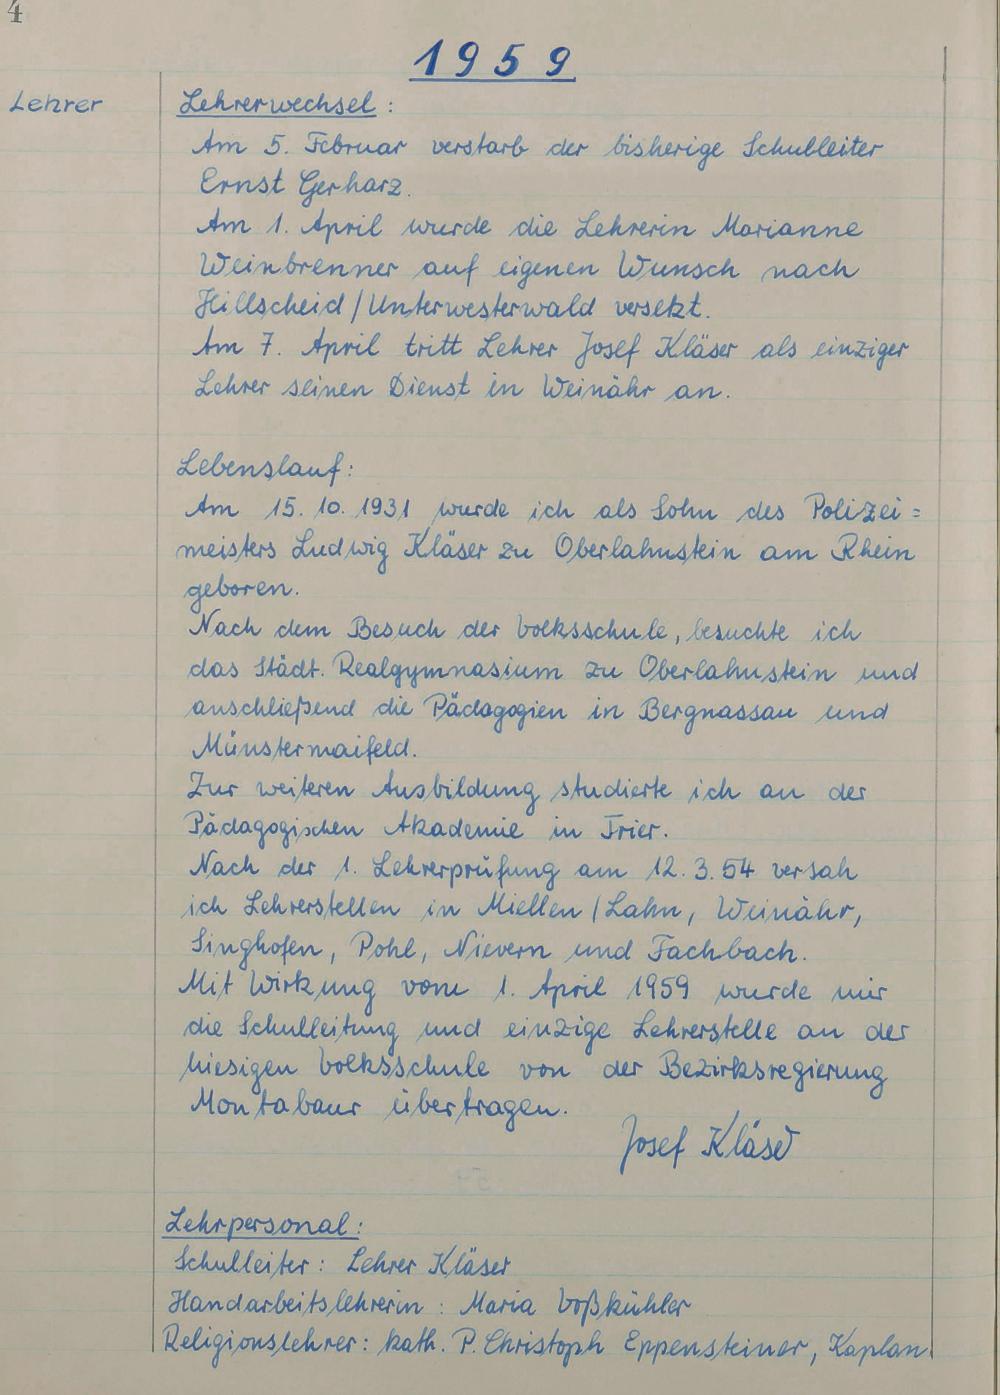 4
1959
Lehrer
Lehrerwechsel:
Am 5. Februar verstarb der bisherige Schulleiter
Ernst Gerharz.
Am 1. April wurde die Lehrerin Marianne
Weinbrenner auf eigenen Wunsch nach
Hillscheid/Unterwesterwald versetzt.
Am 7. April tritt Lehrer Josef Kläser als einziger
Lehrer seinen Dienst in Weinähr an.
Lebenslauf:
Am 15. 10. 1931 wurde ich als Sohn des Polizei=
meisters Ludwig Kläser zu Oberlahnstein am Rhein
geboren.
Nach dem Besuch der Volksschule, besuchte ich
das Städt. Realgymnasium zu Oberlahnstein und
anschließend die Pädagogien in Bergnassau und
Münstermaifeld.
Zur weiteren Ausbildung studierte ich an der
Pädagogischen Akademie in Trier.
Nach der 1. Lehrerprüfung am 12. 3. 54 versah
ich Lehrerstellen in Miellen/Lahn, Weinähr,
Singhofen, Pohl, Nievern und Fachbach.
Mit Wirkung vom 1. April 1959 wurde mir
die Schulleitung und einzige Lehrerstelle an der
hiesigen Volksschule von der Bezirksregierung
Montabaur übertragen.
Josef Kläser
Lehrpersonal:
Schulleiter: Lehrer Kläser
Handarbeitslehrerin: Maria Voßkühler
Religionslehrer: kath. P. Christoph Eppensteiner, Kaplan